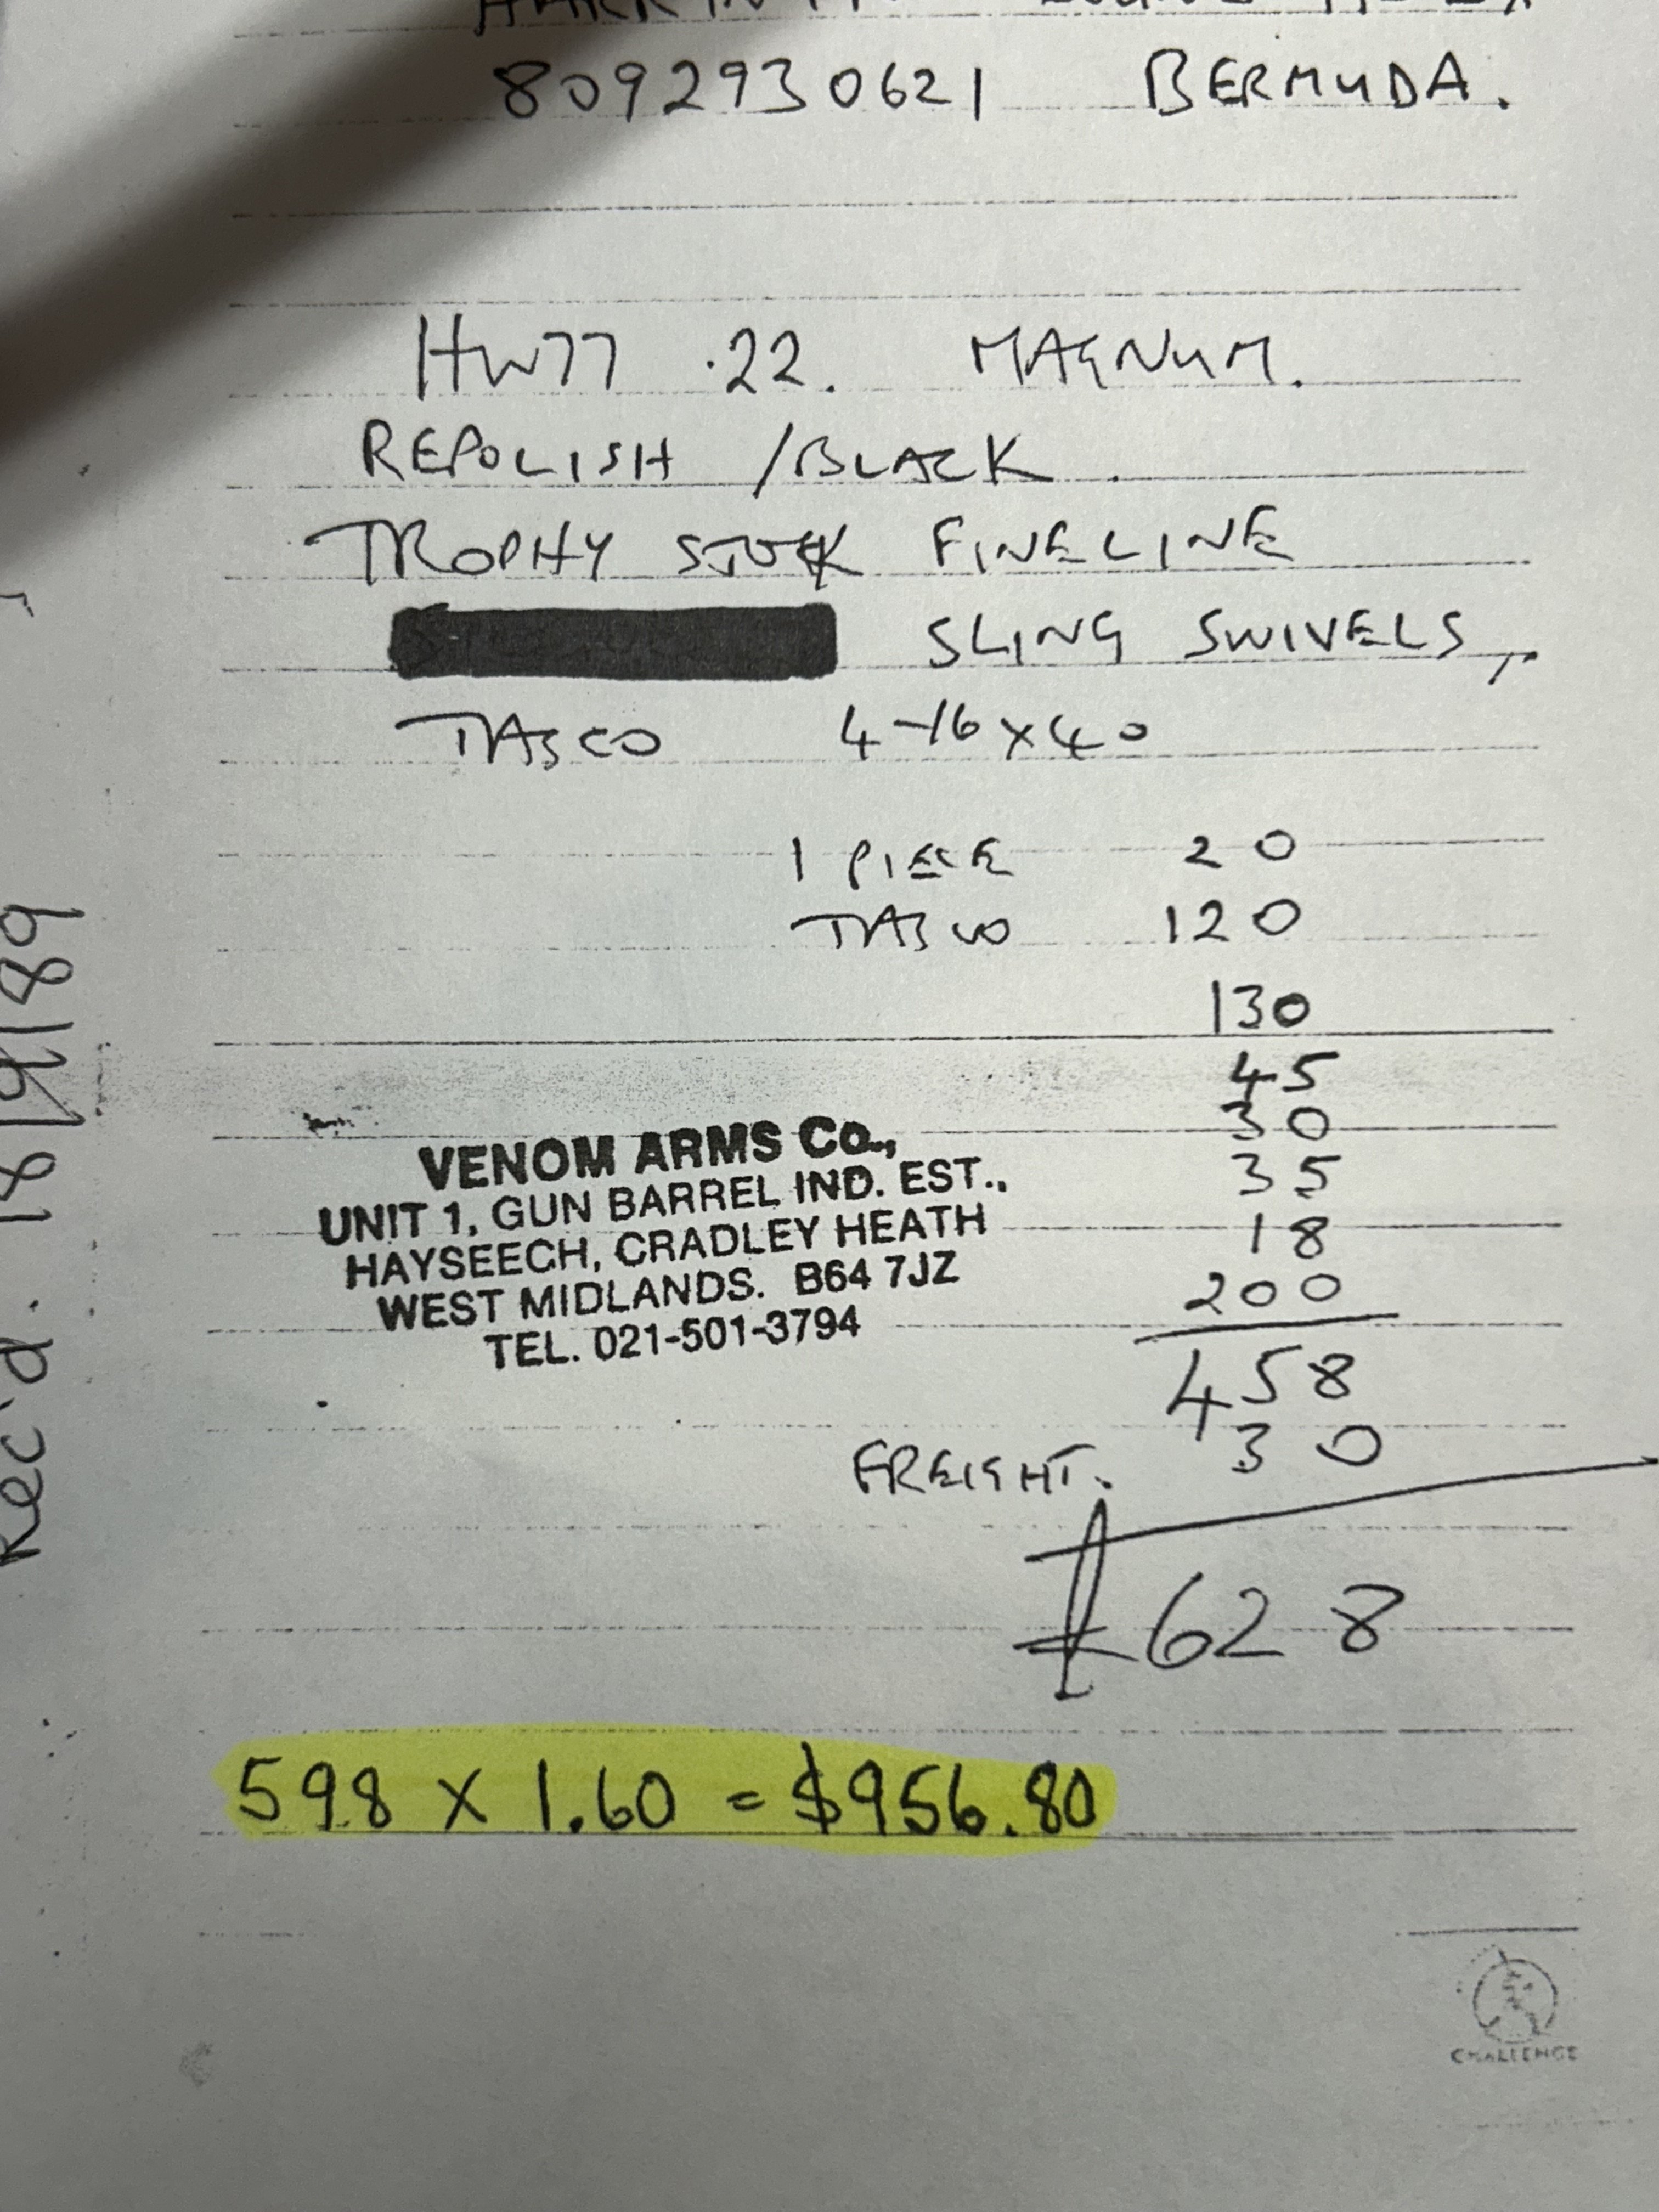 8092930621 BERMUDA.
HW77 .22. MAGNUM.
REPOLISH /BLACK.
TROPHY STOCK FINELINE
SLING SWIVELS,
TASCO 4-16x40
1 PIECE 20
TASCO 120
130
45
30
35
18
200
458
FREIGHT. 30
£628
VENOM ARMS Co.,
UNIT 1, GUN BARREL IND. EST.,
HAYSEECH, CRADLEY HEATH
WEST MIDLANDS. B64 7JZ
TEL. 021-501-3794
598 x 1.60 = $956.80
Rec'd. 18/9/89
CHALLENGE